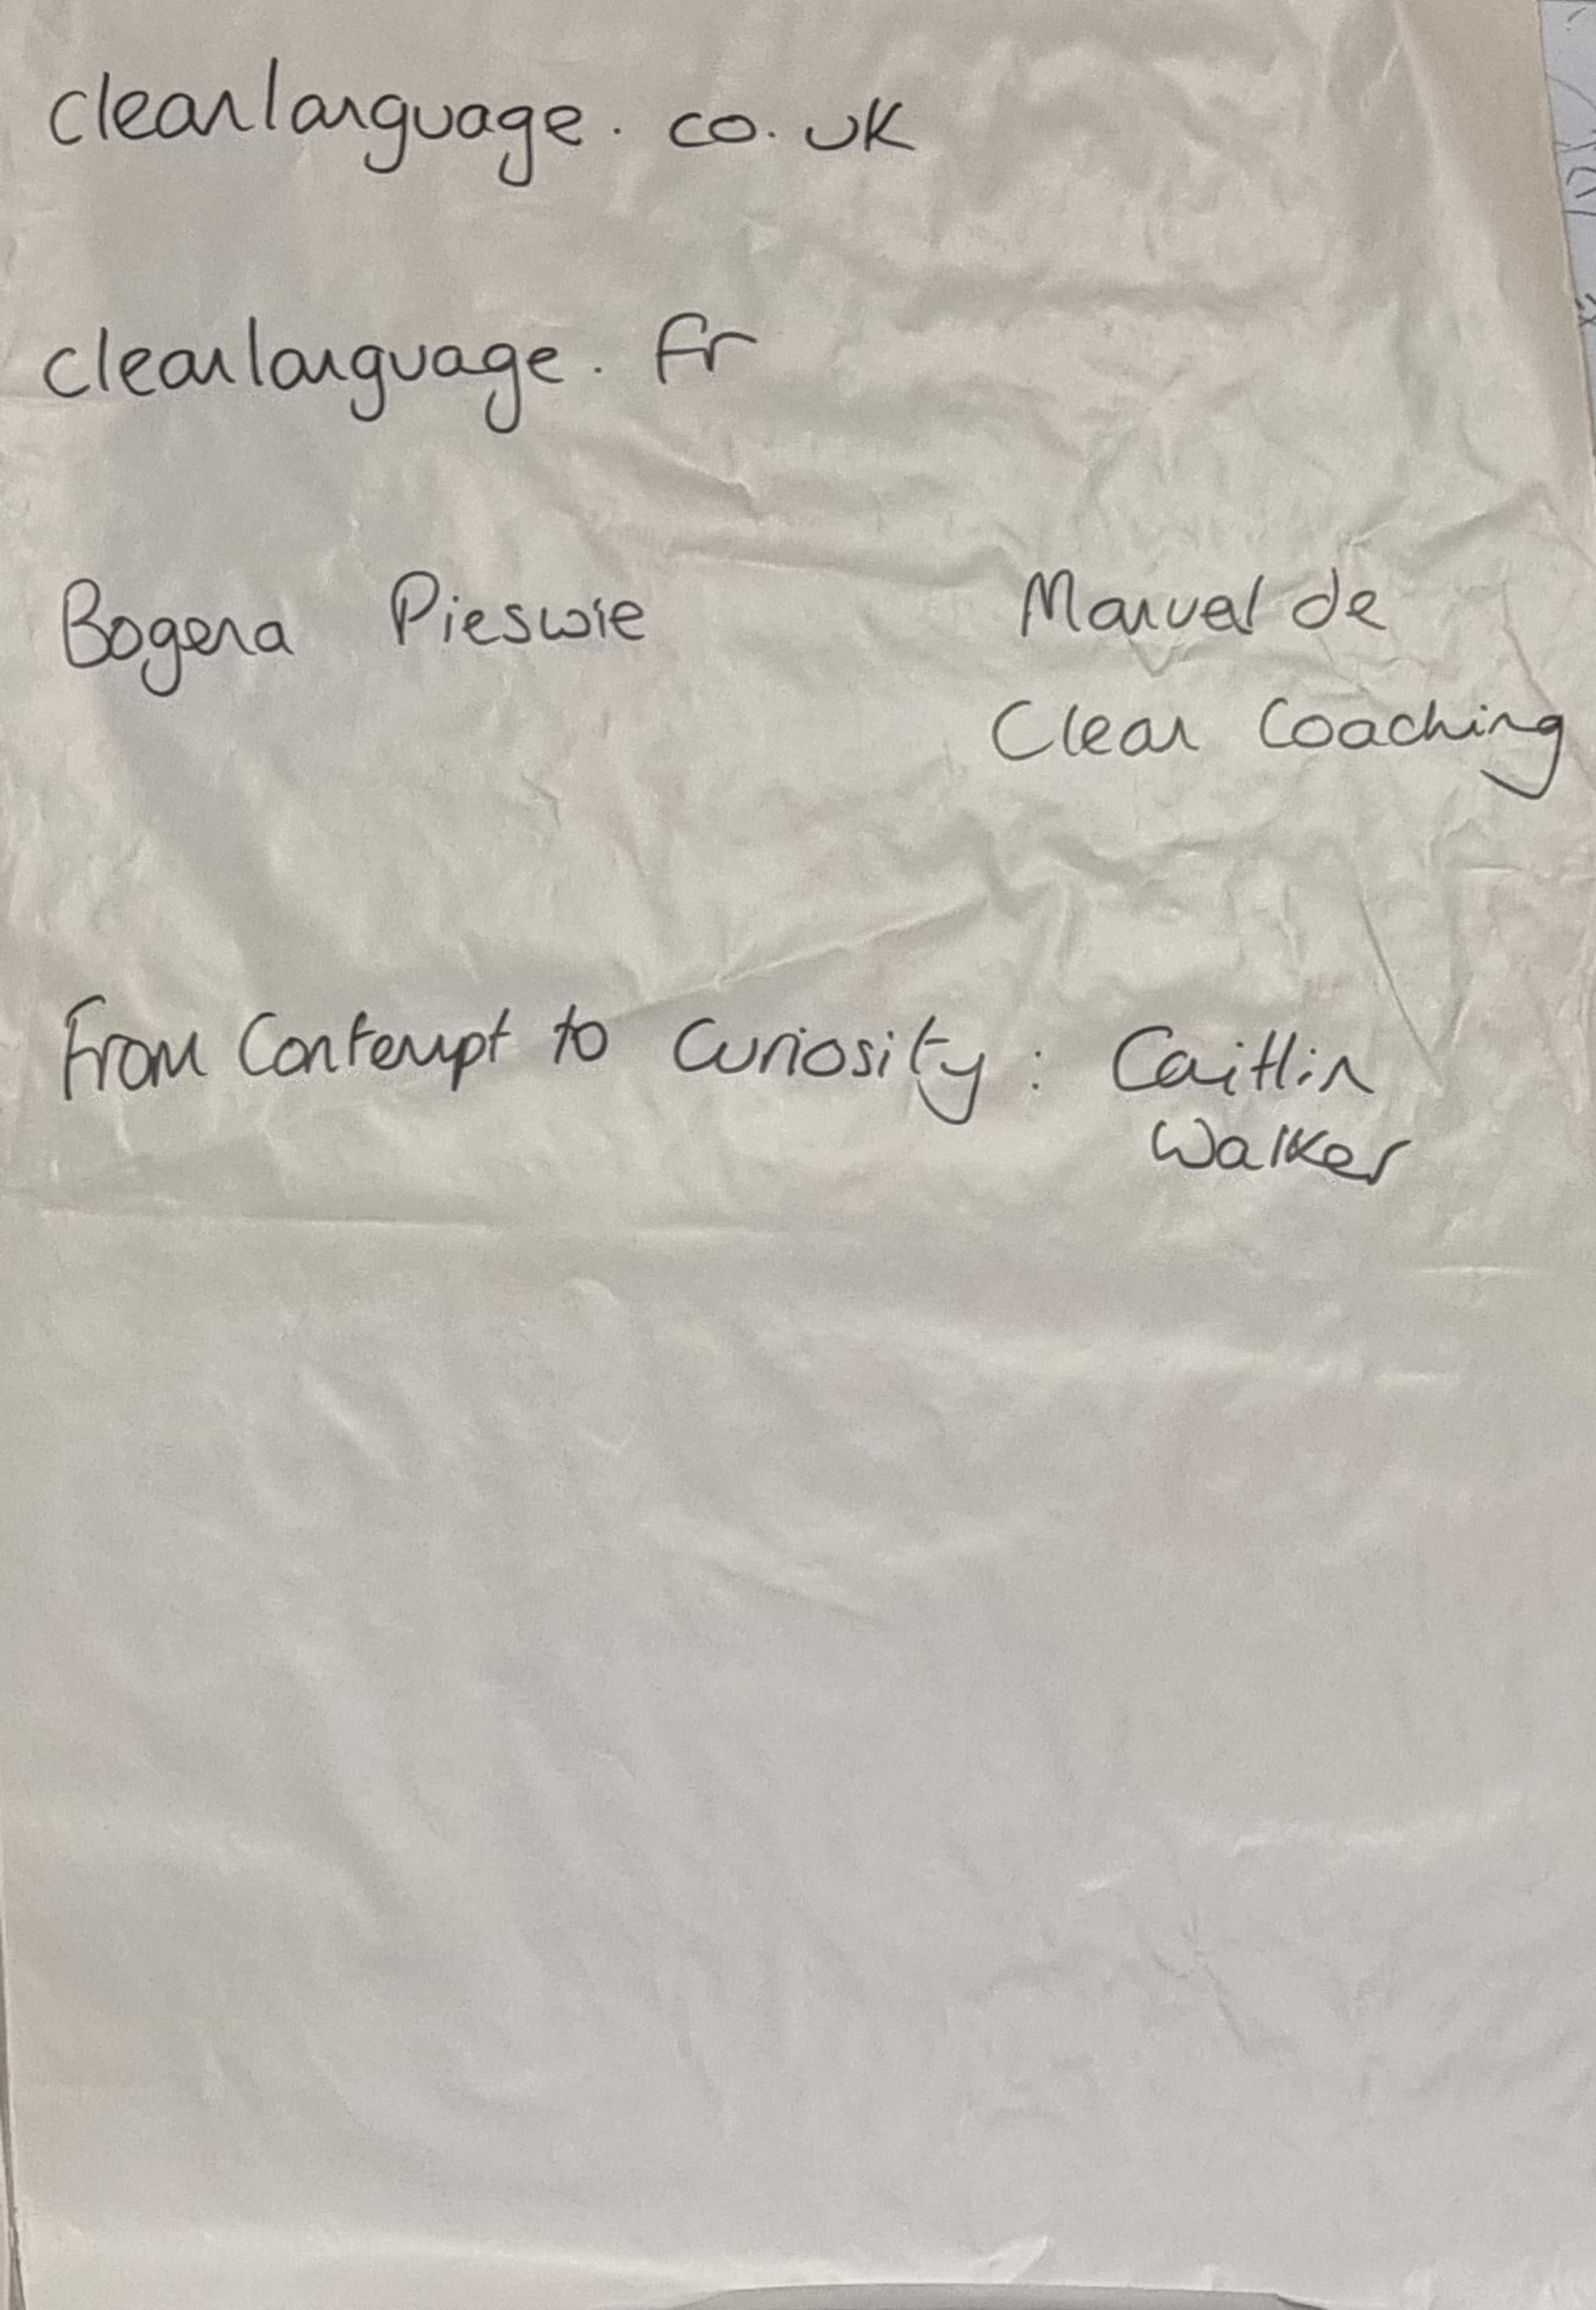 cleanlanguage. co. uk
cleanlanguage. fr
Bogena Pieswie
Manuel de
Clean Coaching
From Contempt to Curiosity : Caitlin
Walker